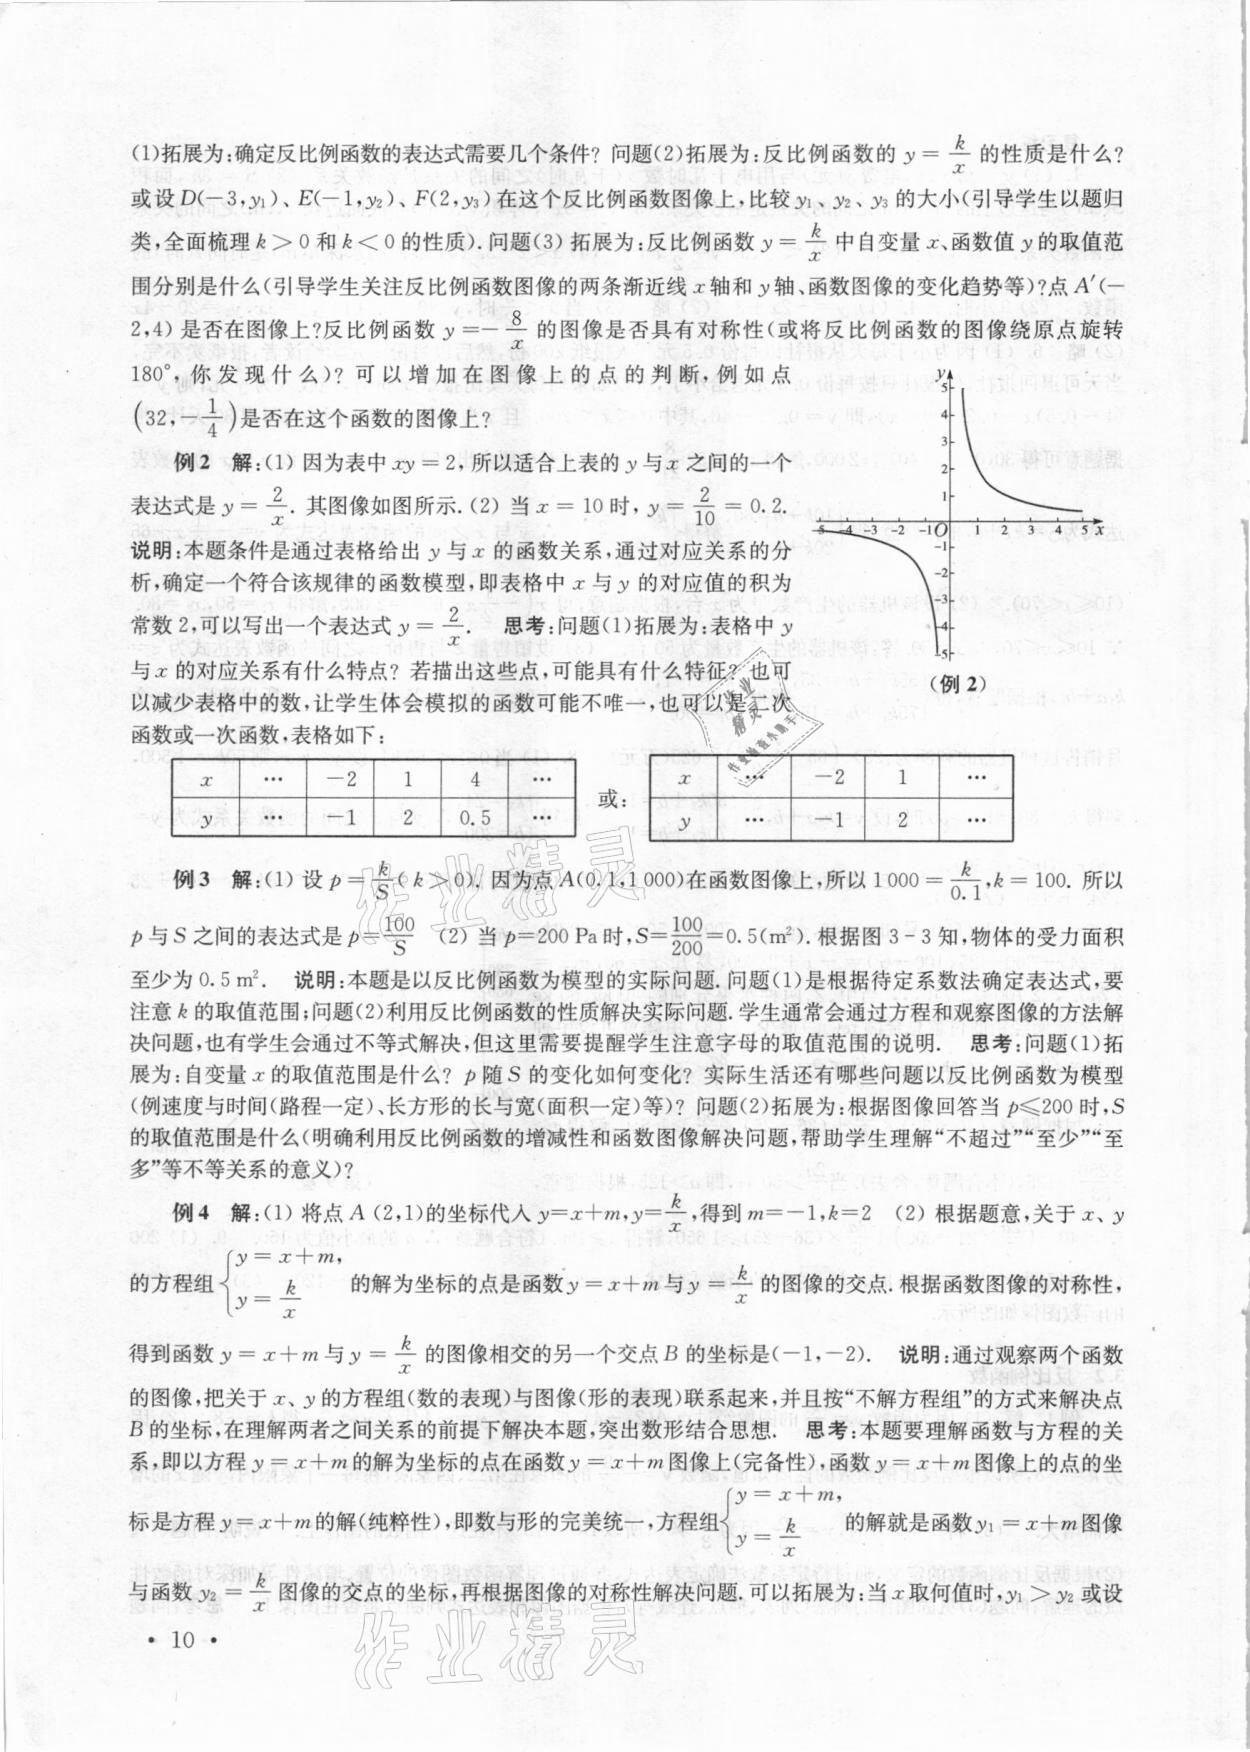 (1)拓展为:确定反比例函数的表达式需要几个条件? 问题(2)拓展为:反比例函数的 y = k/x 的性质是什么?
或设 D(-3,y₁)、E(-1,y₂)、F(2,y₃)在这个反比例函数图像上,比较 y₁、y₂、y₃ 的大小(引导学生以题归
类,全面梳理 k>0 和 k<0 的性质). 问题(3) 拓展为:反比例函数 y = k/x 中自变量 x、函数值 y 的取值范
围分别是什么(引导学生关注反比例函数图像的两条渐近线 x 轴和 y 轴、函数图像的变化趋势等)?点 A′(-
2,4) 是否在图像上?反比例函数 y =- 8/x 的图像是否具有对称性(或将反比例函数的图像绕原点旋转
180°,你发现什么)? 可以增加在图像上的点的判断,例如点
(32,-1/4)是否在这个函数的图像上?
例2 解:(1) 因为表中 xy = 2,所以适合上表的 y 与 x 之间的一个
表达式是 y = 2/x. 其图像如图所示. (2) 当 x = 10 时, y = 2/10 = 0.2.
说明:本题条件是通过表格给出 y 与 x 的函数关系,通过对应关系的分
析,确定一个符合该规律的函数模型,即表格中 x 与 y 的对应值的积为
常数 2,可以写出一个表达式 y = 2/x. 思考:问题(1)拓展为:表格中 y
与 x 的对应关系有什么特点? 若描出这些点,可能具有什么特征? 也可
以减少表格中的数,让学生体会模拟的函数可能不唯一,也可以是二次
函数或一次函数,表格如下:
y
5
4
3
2
1
-5 -4 -3 -2 -1 O 1 2 3 4 5 x
-1
-2
-3
-4
-5
(例 2)
x … -2 1 4 …
y … -1 2 0.5 …
或:
x … -2 1 …
y … -1 2 …
例3 解:(1) 设 p = k/S (k>0). 因为点 A(0.1,1 000)在函数图像上,所以 1 000 = k/0.1,k = 100. 所以
p 与 S 之间的表达式是 p=100/S (2) 当 p=200 Pa 时,S=100/200=0.5(m²). 根据图 3-3 知,物体的受力面积
至少为 0.5 m². 说明:本题是以反比例函数为模型的实际问题. 问题(1)是根据待定系数法确定表达式,要
注意 k 的取值范围;问题(2)利用反比例函数的性质解决实际问题. 学生通常会通过方程和观察图像的方法解
决问题,也有学生会通过不等式解决,但这里需要提醒学生注意字母的取值范围的说明. 思考:问题(1)拓
展为:自变量 x 的取值范围是什么? p 随 S 的变化如何变化? 实际生活还有哪些问题以反比例函数为模型
(例速度与时间(路程一定)、长方形的长与宽(面积一定)等)? 问题(2)拓展为:根据图像回答当 p⩽200 时,S
的取值范围是什么(明确利用反比例函数的增减性和函数图像解决问题,帮助学生理解“不超过”“至少”“至
多”等不等关系的意义)?
例4 解:(1) 将点 A (2,1)的坐标代人 y=x+m,y=k/x,得到 m=-1,k=2 (2) 根据题意,关于 x、y
的方程组{y = x+m, y = k/x 的解为坐标的点是函数 y = x+m 与 y = k/x 的图像的交点. 根据函数图像的对称性,
得到函数 y = x+m 与 y = k/x 的图像相交的另一个交点 B 的坐标是(-1,-2). 说明:通过观察两个函数
的图像,把关于 x、y 的方程组(数的表现)与图像(形的表现)联系起来,并且按“不解方程组”的方式来解决点
B 的坐标,在理解两者之间关系的前提下解决本题,突出数形结合思想. 思考:本题要理解函数与方程的关
系,即以方程 y = x+m 的解为坐标的点在函数 y = x+m 图像上(完备性),函数 y = x+m 图像上的点的坐
标是方程 y = x+m 的解(纯粹性),即数与形的完美统一,方程组{y = x+m, y = k/x 的解就是函数 y₁ = x+m 图像
与函数 y₂ = k/x 图像的交点的坐标,再根据图像的对称性解决问题. 可以拓展为:当 x 取何值时,y₁ > y₂ 或设
• 10 •
作业精灵
作业精灵
作业
精灵
作业检查小助手